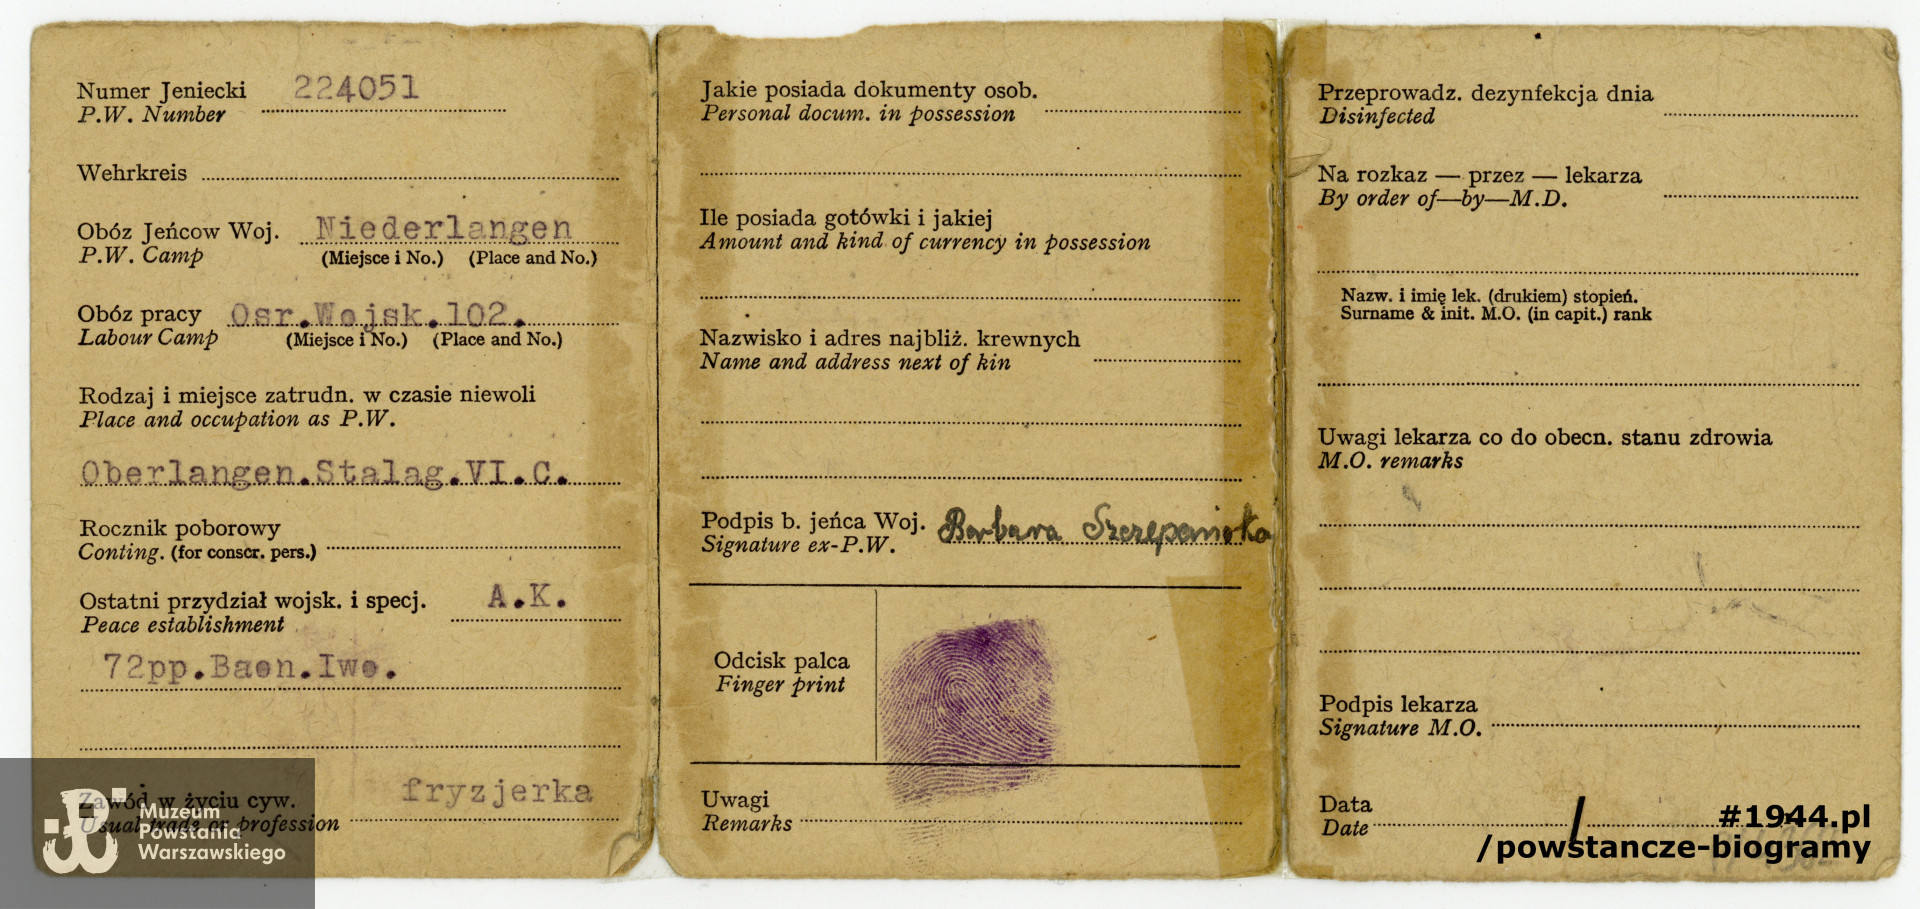 Numer Jeniecki 224051
P.W. Number
Wehrkreis
Obóz Jeńcow Woj. Niederlangen
P.W. Camp (Miejsce i No.) (Place and No.)
Obóz pracy Osr.Wojsk.102.
Labour Camp (Miejsce i No.) (Place and No.)
Rodzaj i miejsce zatrudn. w czasie niewoli
Place and occupation as P.W.
Oberlangen.Stalag.VI.C.
Rocznik poborowy
Conting. (for conscr. pers.)
Ostatni przydział wojsk. i specj. A.K.
Peace establishment
72pp.Baon.Iwo.
Zawód w życiu cyw. fryzjerka
Usual trade or profession
Muzeum
Powstania
Warszawskiego
Jakie posiada dokumenty osob.
Personal docum. in possession
Ile posiada gotówki i jakiej
Amount and kind of currency in possession
Nazwisko i adres najbliż. krewnych
Name and address next of kin
Podpis b. jeńca Woj. Barbara Szczepańska
Signature ex-P.W.
Odcisk palca
Finger print
Uwagi
Remarks
Przeprowadz. dezynfekcja dnia
Disinfected
Na rozkaz — przez — lekarza
By order of—by—M.D.
Nazw. i imię lek. (drukiem) stopień.
Surname & init. M.O. (in capit.) rank
Uwagi lekarza co do obecn. stanu zdrowia
M.O. remarks
Podpis lekarza
Signature M.O.
Data
Date
#1944.pl
/powstancze-biogramy